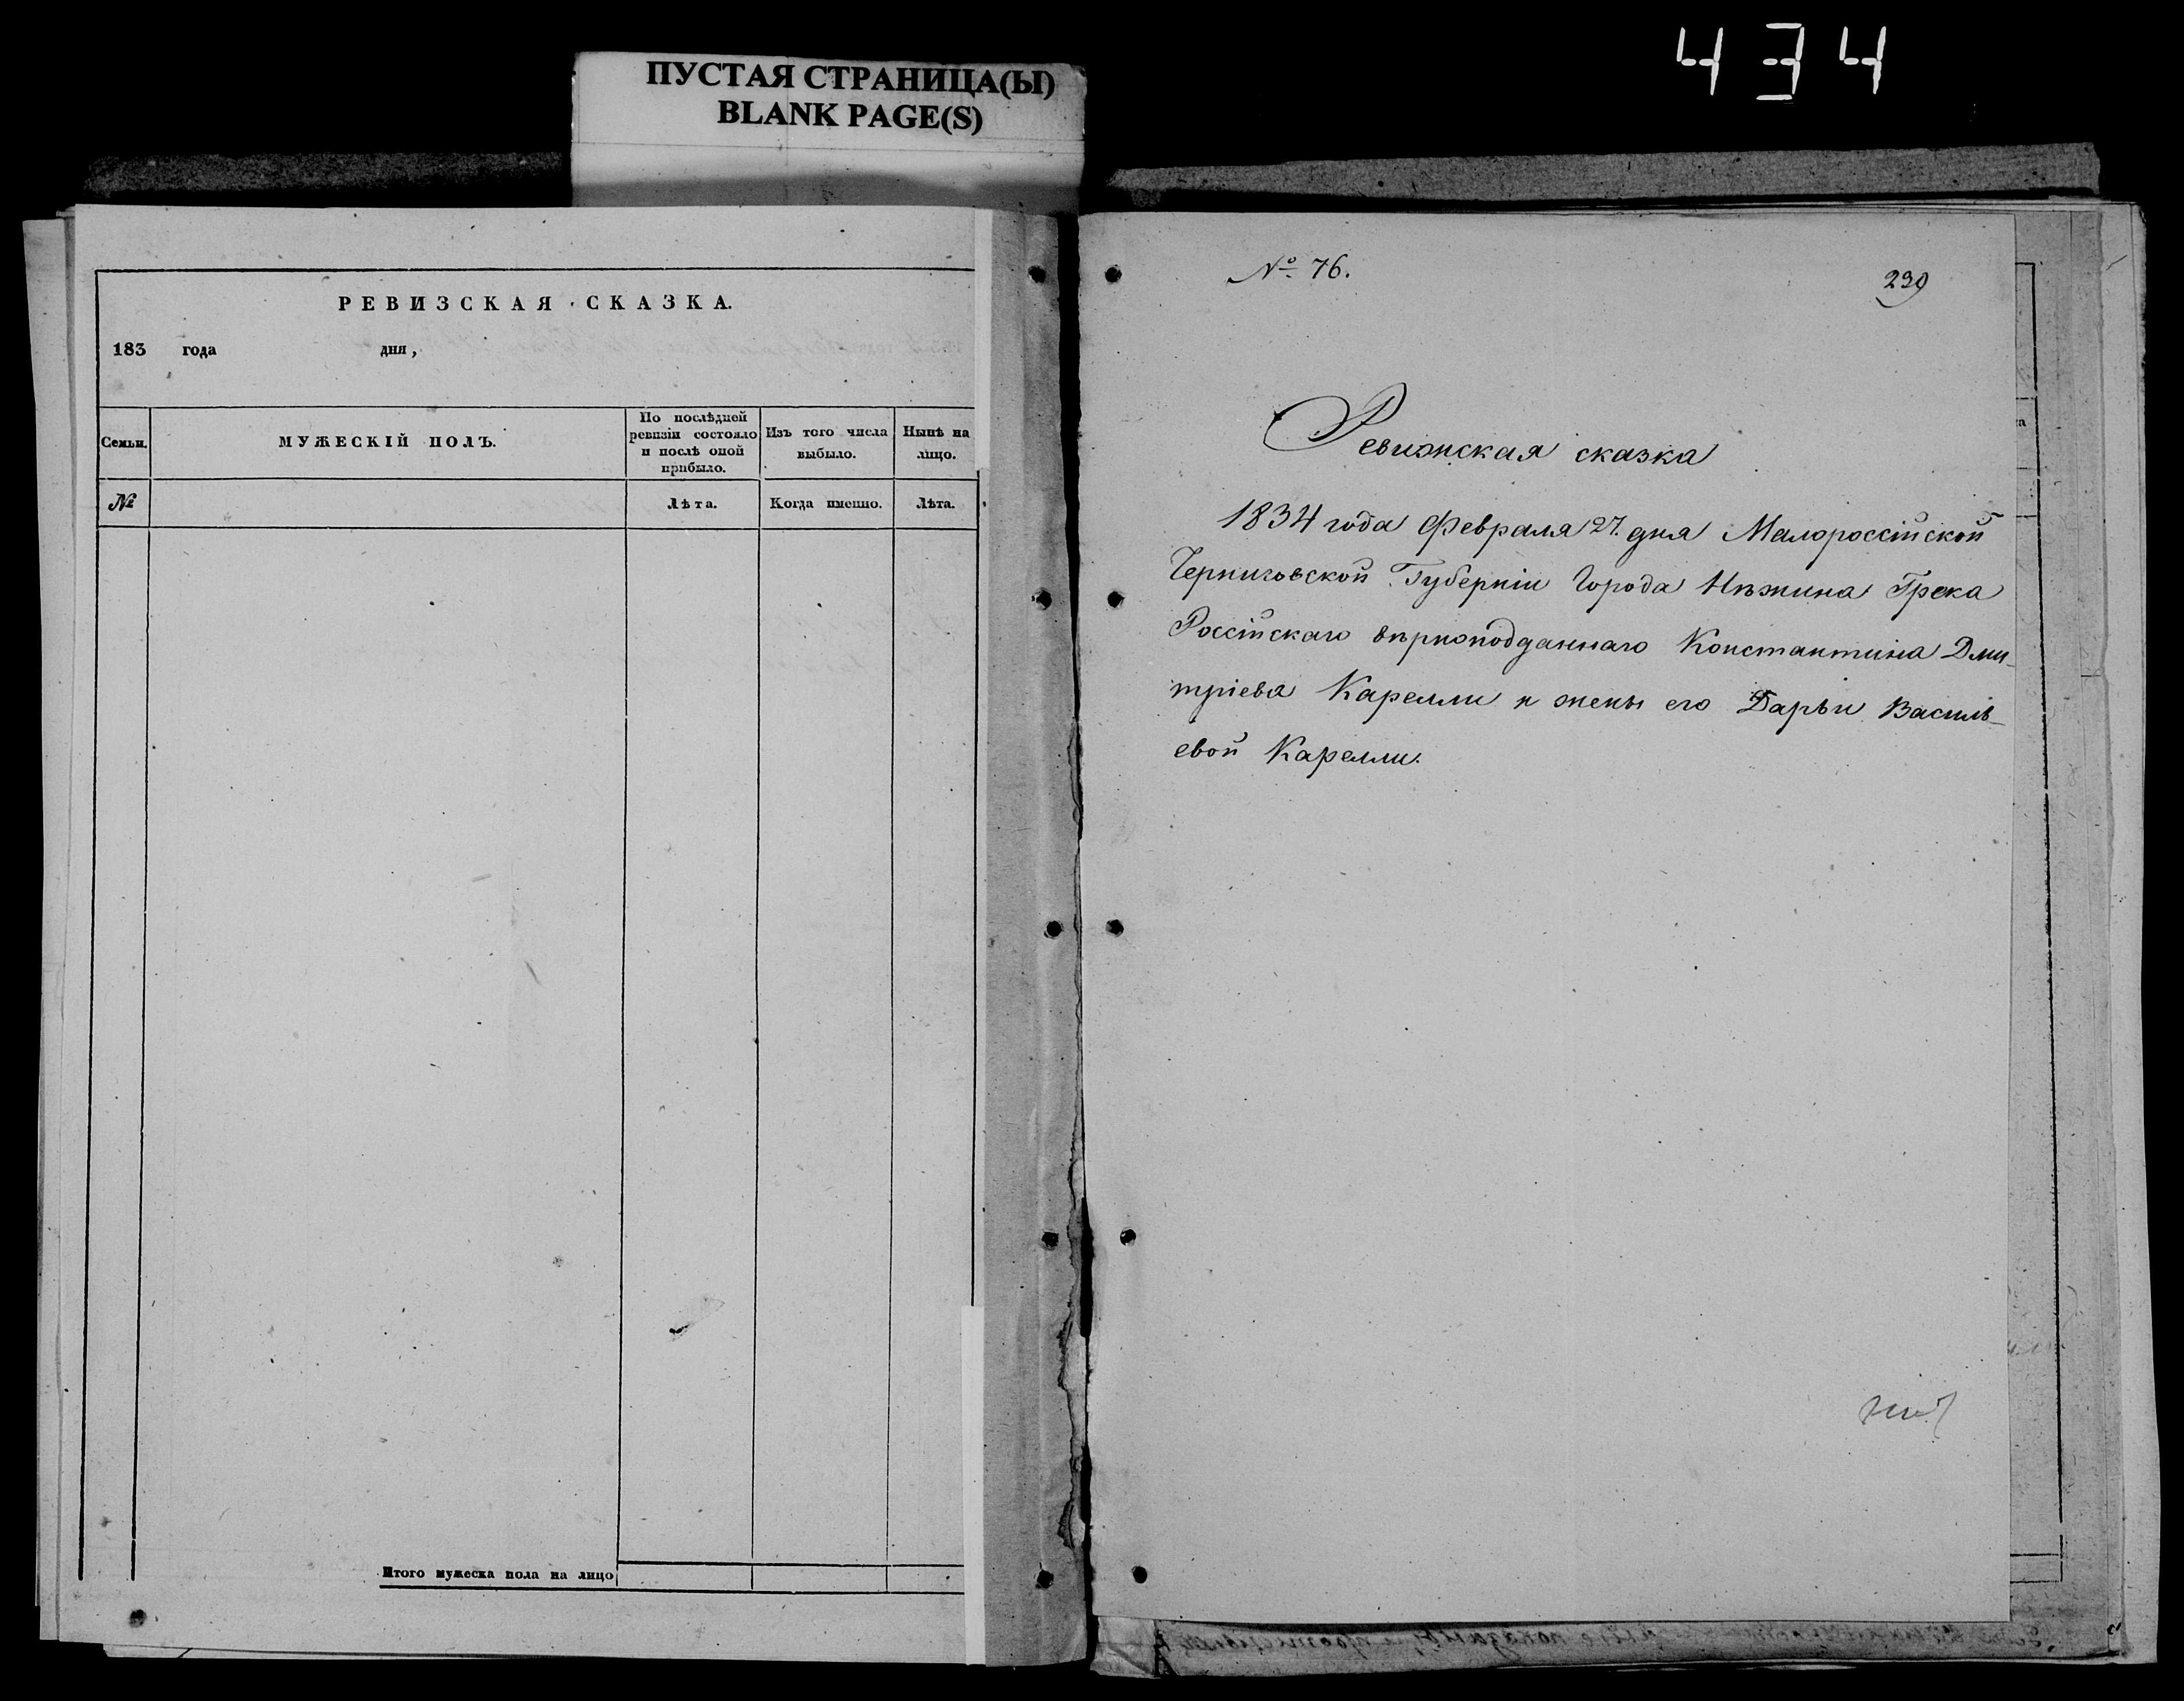 434
ПУСТАЯ СТРАНИЦА(Ы)
BLANK PAGE(S)
РЕВИЗСКАЯ СКАЗКА.
183 года дня,
Семьи.
МУЖЕСКІЙ ПОЛЪ.
По послѣдней ревизіи состояло и послѣ оной прибыло.
Изъ того числа выбыло.
Нынѣ на лицо.
№
Лѣта.
Когда именно.
Лѣта.
Итого мужеска пола на лицо
№ 76.
239
Ревижская сказка
1834 года Февраля 27. дня Малороссійской
Черниговской Губерніи Города Нѣжина Грека
Россійскаго вѣрноподданнаго Константина Дми-
тріева Карелли и жены его Дарьи Василь-
евой Карелли.